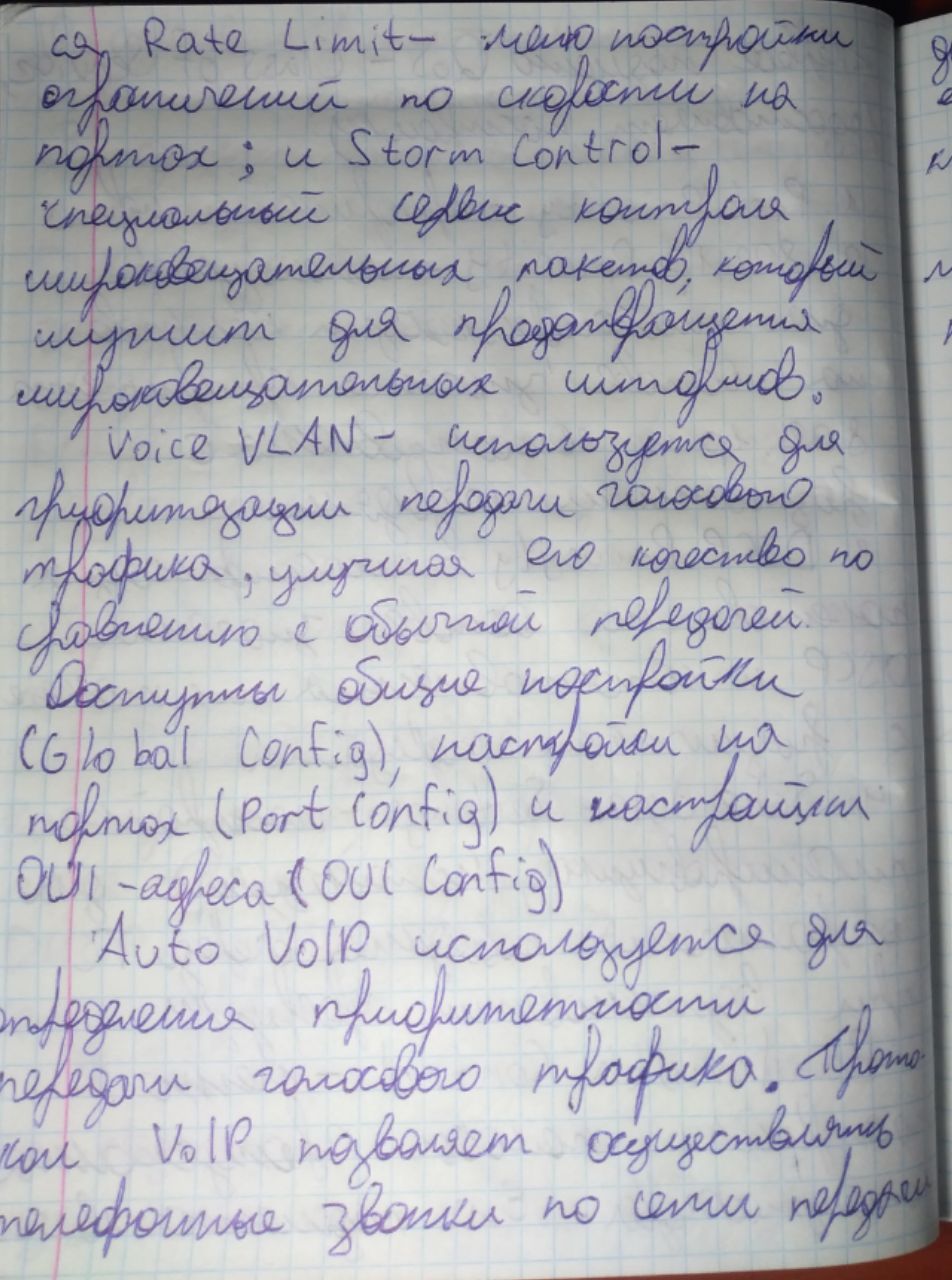 ся, Rate Limit – меню настройки
ограничений по скорости на
портах; и Storm Control –
специальный сервис контроля
широковещательных пакетов, который
служит для предотвращения
широковещательных штормов.
Voice VLAN – используется для
приоритизации передачи голосового
трафика, улучшая его качество по
сравнению с обычной передачей.
Доступны общие настройки
(Global Config), настройки на
портах (Port Config) и настройки
OUI-адреса (OUI Config)
Auto VoIP используется для
определения приоритетности
передачи голосового трафика. Прото-
кол VoIP позволяет осуществлять
телефонные звонки по сети передачи